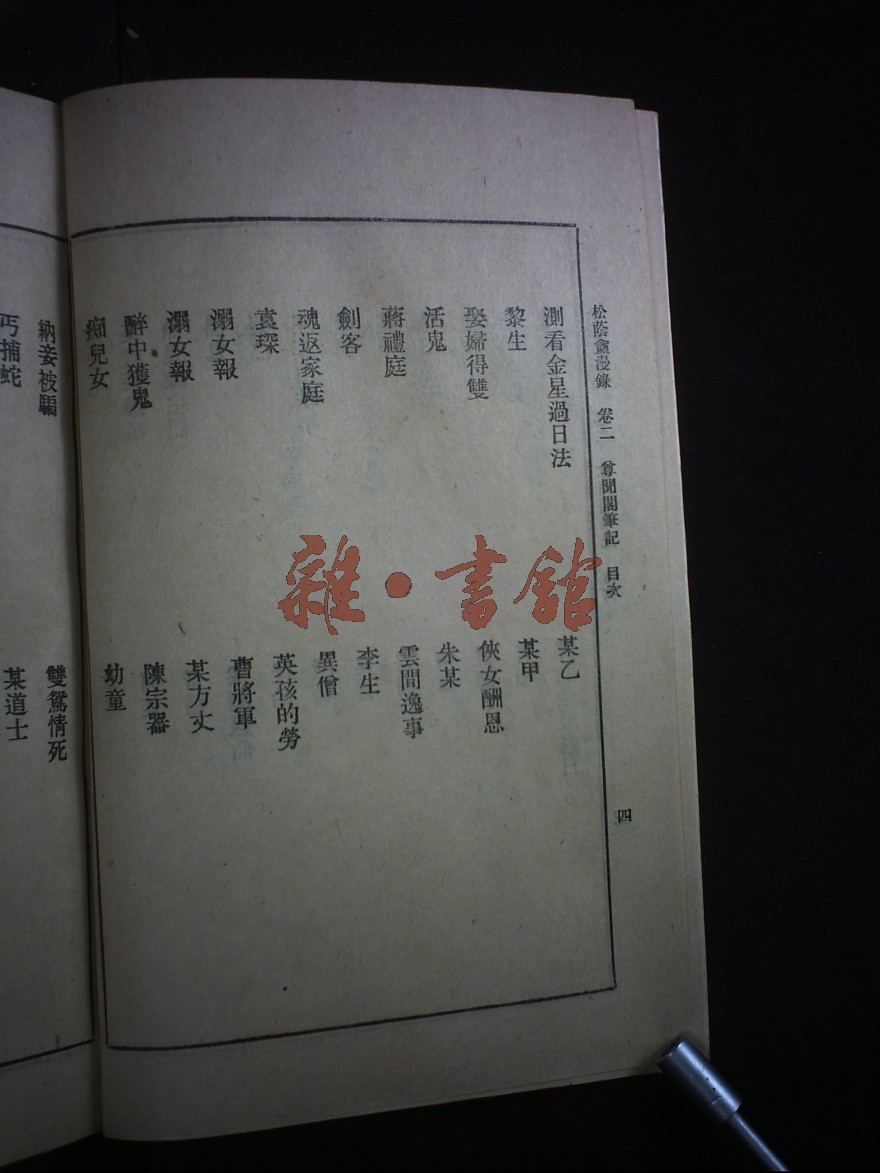 松蔭盦漫錄 卷二 尊聞閣筆記 目次 四
測看金星過日法 某乙
黎生 某甲
娶婦得雙 俠女酬恩
活鬼 朱某
蔣禮庭 雲間逸事
劍客 李生
魂返家庭 異僧
袁琛 英孩的勞
溺女報 曹將軍
溺女報 某方丈
醉中獲鬼 陳宗器
痴兒女 幼童
納妾被騙 雙鴛情死
丐捕蛇 某道士
雜·書館